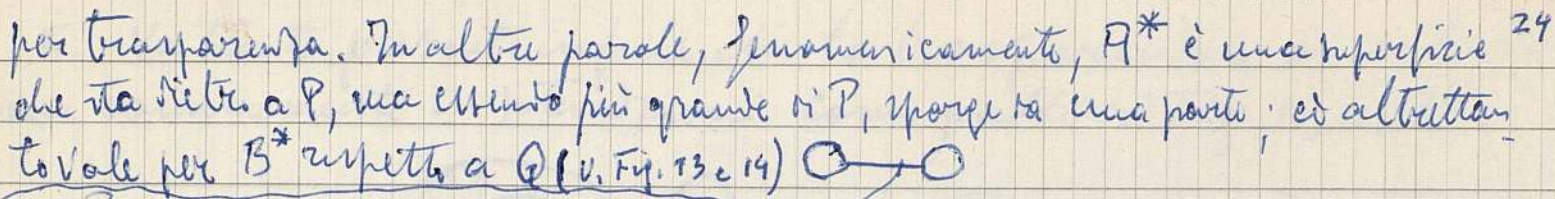 per trasparenza. In altre parole, fenomenicamente, A* è una superficie 24
che sta dietro a P, ma essendo più grande di P, sporge da una parte; ed altrettan
to vale per B* rispetto a Q (v. Fig. 13 e 14)